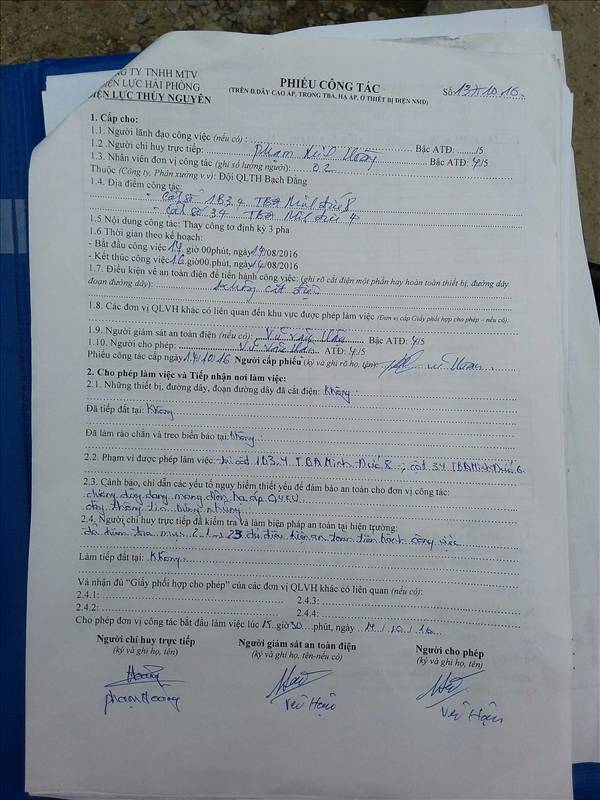 CÔNG TY TNHH MTV
ĐIỆN LỰC HẢI PHÒNG
ĐIỆN LỰC THỦY NGUYÊN
PHIẾU CÔNG TÁC
(TRÊN Đ.DÂY CAO ÁP, TRONG TBA, HẠ ÁP, Ở THIẾT BỊ ĐIỆN NMĐ)
Số
1. Cấp cho:
1.1. Người lãnh đạo công việc (nếu có) : Bậc ATĐ: ....../5
1.2 .Người chỉ huy trực tiếp: phạm Hoàng Bậc ATĐ: 4/5
1.3. Nhân viên đơn vị công tác (ghi số lượng người): 02
Thuộc (Công ty, Phân xưởng v.v): Đội QLTH Bạch Đằng
1.4. Địa điểm công tác:
- Cột số 1B3.4 TBA Minh Đức 8
- Cột số 3.4 TBA Minh Đức
1.5 Nội dung công tác: Thay công tơ định kỳ 3 pha
1.6 Thời gian theo kế hoạch:
- Bắt đầu công việc 14 giờ 00phút, ngày 14/08/2016
- Kết thúc công việc 16 giờ 00.phút, ngày 14/08/2016
1.7. Điều kiện về an toàn điện để tiến hành công việc: (ghi rõ cắt điện một phần hay hoàn toàn thiết bị, đường dây
đoạn đường dây): không cắt điện
1.8. Các đơn vị QLVH khác có liên quan đến khu vực được phép làm việc (Đơn vị cấp Giấy phối hợp cho phép – nếu có):
1.9. Người giám sát an toàn điện (nếu có): Vũ Văn Hậu Bậc ATĐ: 4/5
1.10. Người cho phép: Vũ Văn Hậu ATĐ: 4/5
Phiếu công tác cấp ngày 14/10/16 Người cấp phiếu (ký và ghi rõ họ, tên):
2. Cho phép làm việc và Tiếp nhận nơi làm việc:
2.1. Những thiết bị, đường dây, đoạn đường dây đã cắt điện: Không
Đã tiếp đất tại: Không
Đã làm rào chắn và treo biển báo tại: không
2.2. Phạm vi được phép làm việc: tại cột 1B3.4 TBA Minh Đức 8 ; cột 3.4 TBA Minh Đức
2.3. Cảnh báo, chỉ dẫn các yếu tố nguy hiểm thiết yếu để đảm bảo an toàn cho đơn vị công tác:
đang mang điện hạ áp 0,4KV
dây thông tin bùng nhùng
2.4. Người chỉ huy trực tiếp đã kiểm tra và làm biện pháp an toàn tại hiện trường:
đã kiểm tra mục 2.1 2.3 đủ điều kiện an toàn tiến hành công việc
Làm tiếp đất tại: Không
Và nhận đủ “Giấy phối hợp cho phép” của các đơn vị QLVH khác có liên quan (nếu có):
2.4.1: 2.4.3:
2.4.2: 2.4.4:
Cho phép đơn vị công tác bắt đầu làm việc lúc 15.giờ 30 phút, ngày 14/10/16
Người chỉ huy trực tiếp Người giám sát an toàn điện Người cho phép
(ký và ghi họ, tên) (ký và ghi họ, tên-nếu có) (ký và ghi họ, tên)
phạm Hoàng Vũ Hậu Vũ Hậu